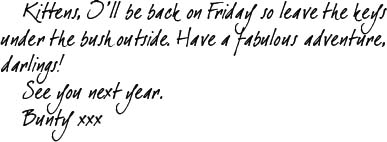 Kittens, I'll be back on Friday so leave the keys
under the bush outside. Have a fabulous adventure,
darlings!
See you next year.
Bunty xxx